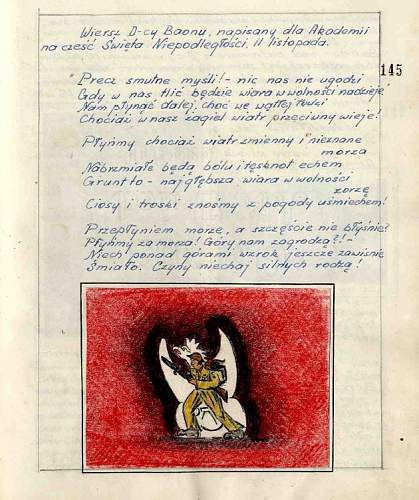 Wiersz D-cy Baonu, napisany dla Akademii
na cześć Święta Niepodległości, 11 listopada.
145
"Precz smutne myśli! - nic nas nie ugodzi
Gdy w nas tlić będzie wiara w wolności nadzieję!
Nam płynąć dalej, choć we wątłej łodzi
Chociaż w nasz żagiel wiatr przeciwny wieje!
Płyńmy chociaż wiatr zmienny i nieznane
morza
Nabrzmiałe będą bólu i tęsknot echem
Grunt to - najgłębsza wiara w wolności
zorzę
Ciosy i troski znośmy z pogody uśmiechem!
Przepłyniem morze, a szczęście nie błyśnie?
Płyńmy za morza! Góry nam zagrodzą?! -
Niech ponad górami wzrok jeszcze zawiśnie
Śmiało. Czyny niechaj silnych rodzą!